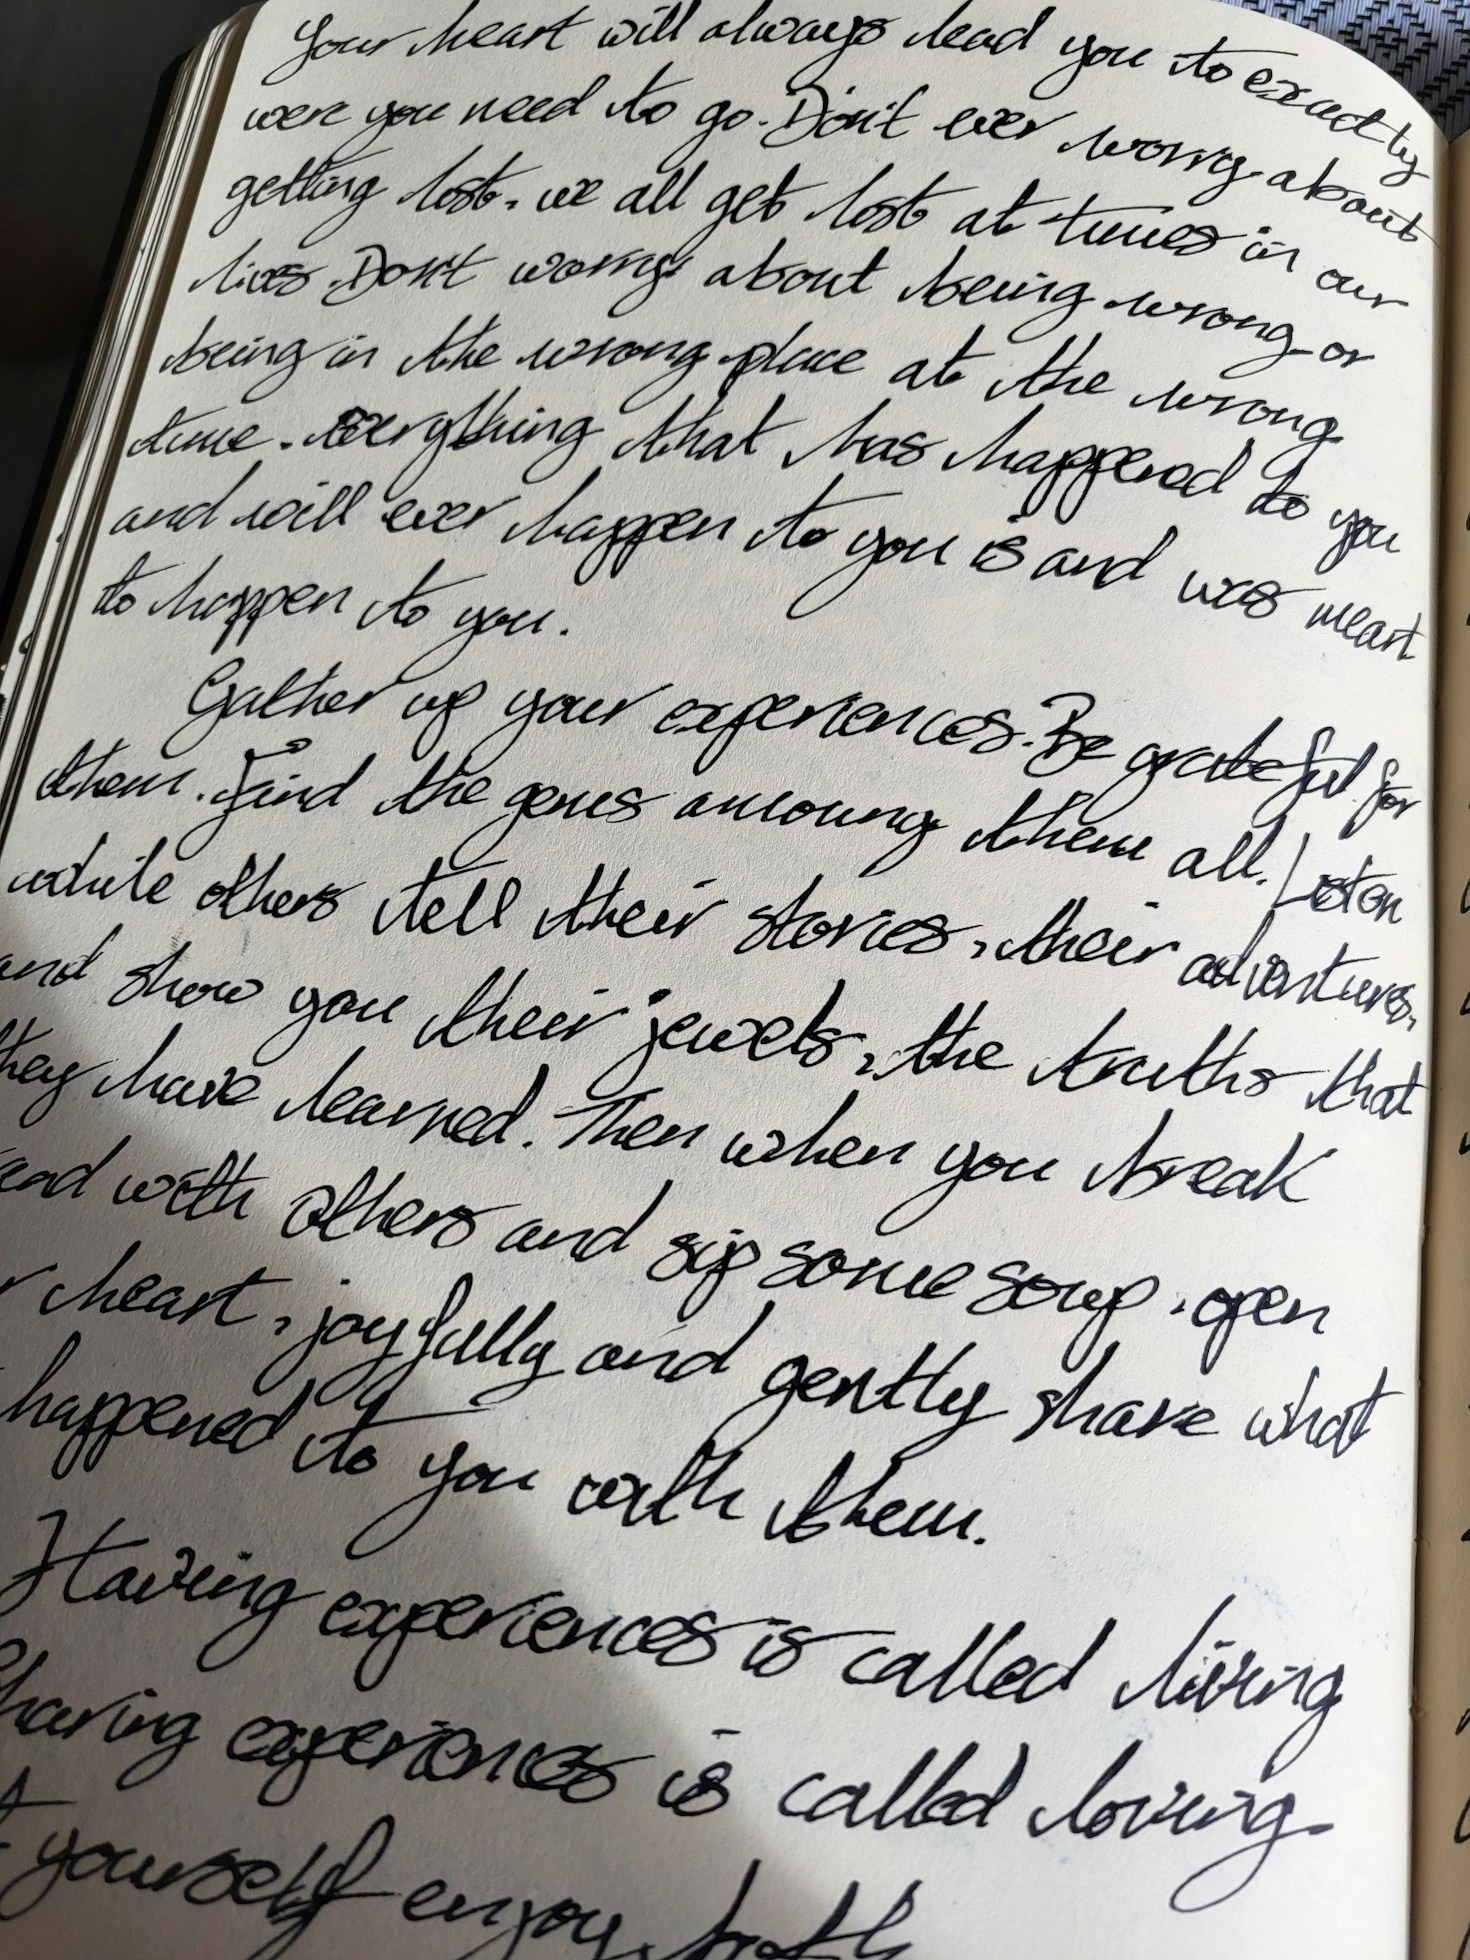 Your heart will always lead you to exactly
were you need to go. Don't ever worry about
getting lost. we all get lost at times in our
lives. Don't worry about being wrong or
being in the wrong place at the wrong
time. everything that has happened to you
and will ever happen to you is and was meant
to happen to you.
Gather up your experiences. Be grateful for
them. Find the gems amoung them all. Listen
while others tell their stories, their adventures,
and show you their jewels, the truths that
they have learned. Then when you break
with others and sip some soup, open
heart, joyfully and gently share what
happened to you with them.
Having experiences is called living
experiences is called loving.
yourself enjoy both